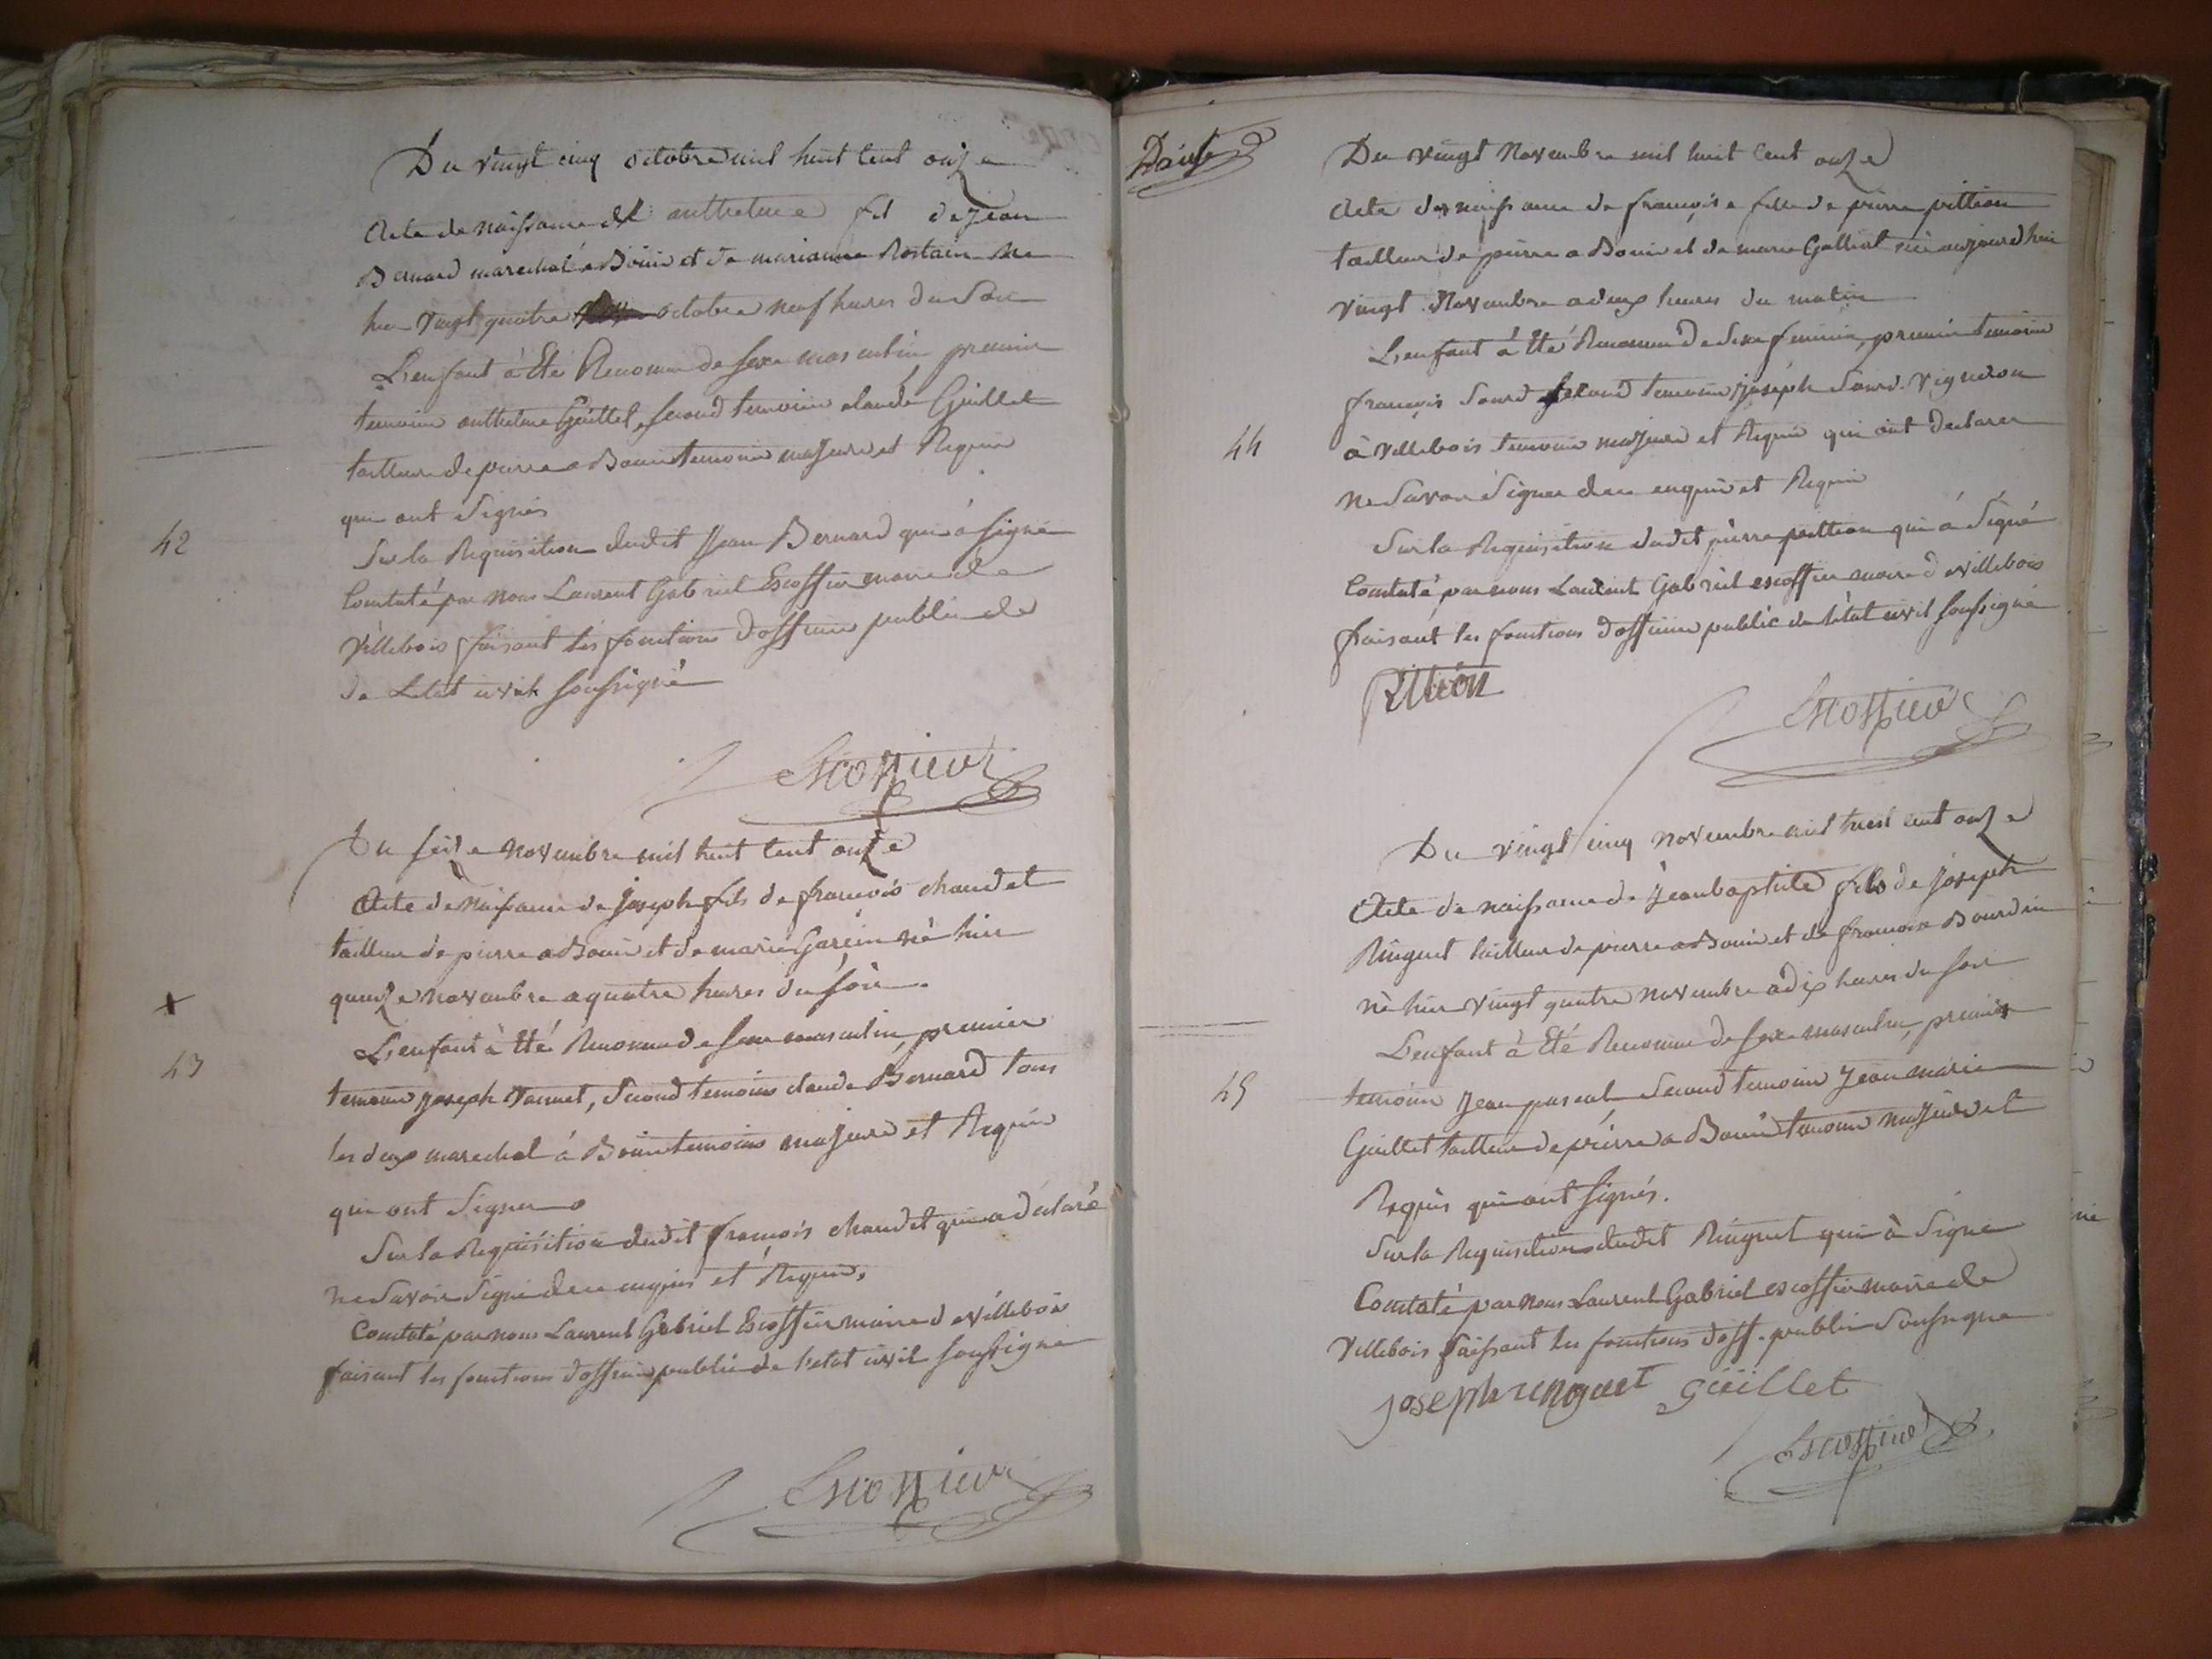 Du vingt cinq octobre mil huit cent onze
Acte de naissance de anthelme fil de jean
Bernard marechal a Bouis et de marianne Rostain ne
hier vingt quatre octobre neuf heures du Soir
L'enfant à Eté Reconnu de sexe masculin premier
temoin anthelme Guillet, second temoin claude Guillet
tailleur de pierre a Bouis temoin majeure et Requis
qui ont Signés
42
Sur la Requisition dudit Jean Bernard qui à signé
Constaté par nous Laurent Gabriel Escoffier maire de
Villebois faisant les fonctions d'officier public de
de L'etat civil soussigné
Escoffier
Du seize novembre mil huit cent onze
Acte de naissance de joseph fils de francois chaudet
tailleur de pierre a Bouis et de marie Garcin né hier
quinze novembre a quatre heures du soir.
L'enfant à été Reconnu de sexe masculin, premier
43
temoin joseph Vannet, Second temoin claude Bernard tous
les deux marechal à Bouis temoins majeure et Requis
qui ont Signer
Sur la Requisition dudit françois chaudet qui a declaré
ne Savoir Signé de ce enquis et Requis,
Constaté par nous Laurent Gabriel Escoffier maire de villebois
faisant les fonctions d'officier public de l'etat civil soussigné
Escoffier
Du vingt Novembre mil huit cent onze
Acte de naissance de françoise fille de pierre pittion
tailleur de pierre a Bouis et de marie Galliat né aujourdhui
vingt Novembre a deux heures du matin
L'enfant à été Reconnu de Sexe feminin, premier temoin
françois Sourd Second temoin joseph Sourd Vigneron
44
à Villebois temoin majeure et Requis qui ont declarer
ne Savoir Signer de ce enquis et Requis
Sur la Requisition dudit pierre pittion qui à Signé
Constaté par nous Laurent Gabriel escoffier maire de villebois
faisant les fonctions d'officier public de l'état civil soussigné
Pittion
Escoffier
Du vingt cinq novembre mil huit cent onze
Acte de naissance de Jean baptiste fils de joseph
Ringuet tailleur de pierre a Bouis et de francoise Bourdin
né hier vingt quatre novembre a dix heures du soir
L'enfant à Eté Reconnu de sexe masculin, premier
45
temoin Jean pascal Second temoin Jean marie
Guillet tailleur de pierre a Bouis temoin majeure et
Requis qui ont signés.
Sur la Requisition dudit Ringuet qui à Signé
Constaté par nous Laurent Gabriel escoffier maire de
Villebois faissant les fonctions d'off. public Soussigné
joseph ringuet guillet
Escoffier